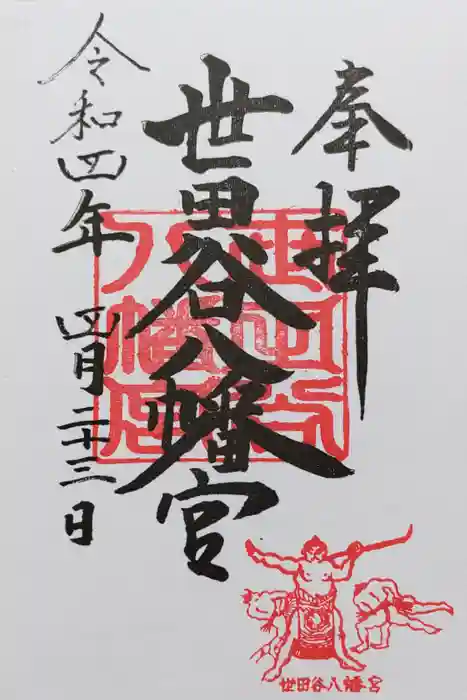 奉拝
世田谷八幡宮
令和四年 四月二十三日
世田谷八幡宮
世田谷八幡宮